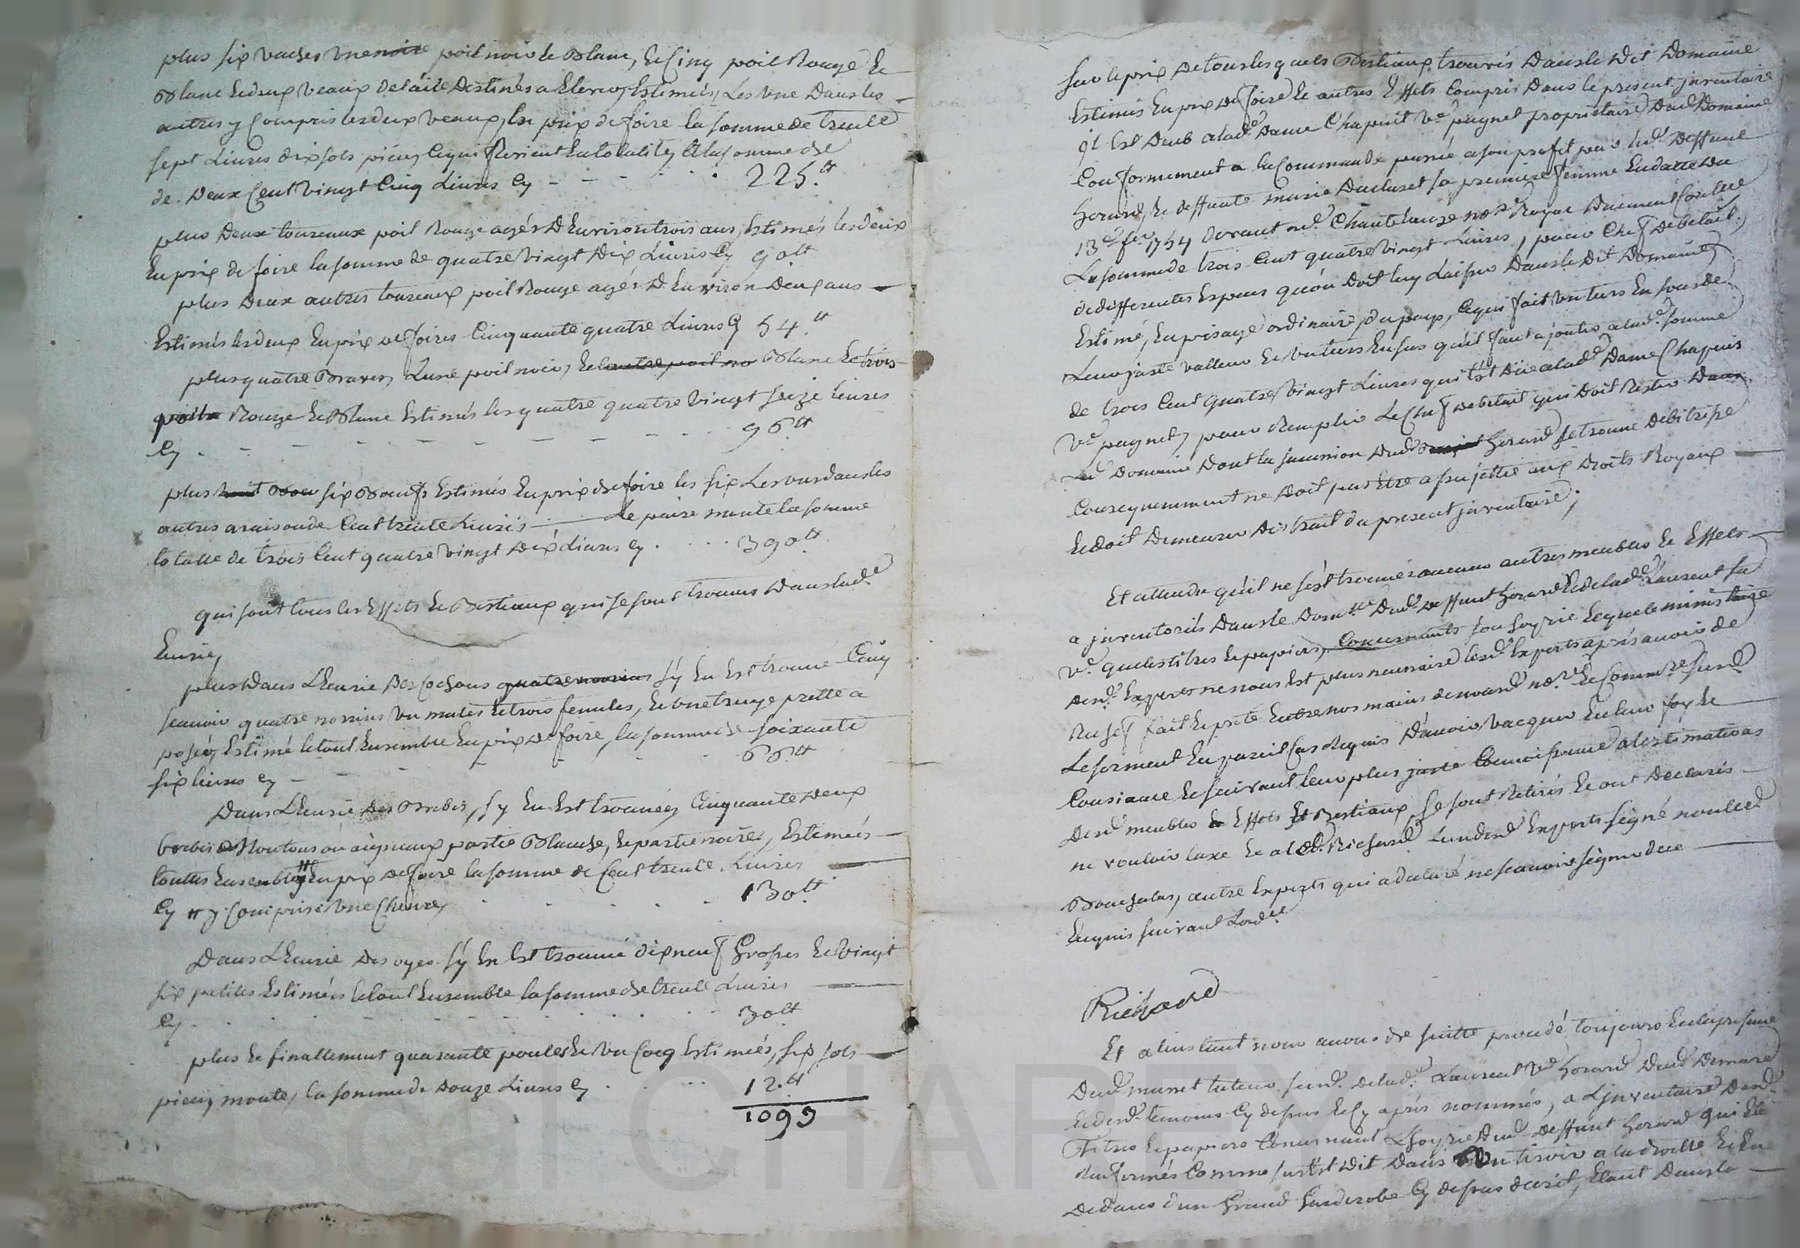 plus six vaches une noire poil noir et blanc, et cinq poil rouge et
blanc et deux veaux de laite destinés a élever, estimées, les une dans les
autres y compris les deux veaux, en prix de foire la somme de trente
sept livres dix sols pièces, ce qui revient en totalité a la somme de
de. deux cent vingt cinq livres cy - - - - 225.tt
plus deux toureaux poil rouge agés d'environ trois ans, estimés les deux
en prix de foire la somme de quatre vingt dix livres cy 90tt
plus deux autres toureaux poil rouge agés d'environ deux ans
estimés les deux en prix de foires cinquante quatre livres cy 54.tt
plus quatre braves, l'une poil noir, et l'autre poil no blanc et trois
poils rouge et blanc estimés les quatre quatre vingt seize livres
cy . - - - - - 96tt
plus huit boeu six boeufs estimés en prix de foire les six les uns dans les
autres a raison de cent trente livres la paire monte la somme
totalle de trois cent quatre vingt dix livres cy . . . . 390tt
qui sont tous les effets et bestiaux qui se sont trouvés dans lad.e
Ecurie,
plus dans l'écurie des cochons quatre norrins s'y en est trouvé cinq
scavoir quatre norrins un males et trois femelles, et une truye prette a
poser, estimé le tout ensemble en prix de foire, la somme de soixante
six livres cy - - - - 66tt
Dans l'écurie des brebis, s'y en est trouvées cinquante deux
brebis moutons ou aigneaux partie blanche, et partie noire, estimées
toutes ensemble en prix de foire la somme de cent trente livres
cy # y compris une chevre, . . . . 130tt
Dans l'écurie des oyes s'y en est trouvé dix neuf grosses et vingt
six petites estimées le tout ensemble la somme de trente livres
cy . . . . . . . . 30tt
plus et finallement quarante poules et un cocq estimées, six sols
pièces, monte, la somme de douze livres cy . . . . 12.tt
1093
sur le prix de tous lesquels bestiaux trouvés dans le dit domaine
estimés en prix de foire et autres effets compris dans le present inventaire
il est dub a lad.e dame Chapuit v.e pagnet propriétaire dud. domaine
conformement a la commande passée a son profit par led. deffunt
Gorard, et deffunte marie Ducluset sa premiere femme en datte du
13e fer. 1754 devant me. Chantelauze no.re Royal duement controllé
la somme de trois cent quatre vingt livres, pour chef de bétail,
de differentes especes qu'on doit luy laisser dans le dit domaine,
estimé, en prisage ordinaire, du pays, ce qui fait un tiers en sous de
leur juste valleur et un tiers en sus qu'il faut ajouter a lad. somme
de trois cent quatre vingt livres qui est due a lad.e dame Chapuis
v.e pagnet, pour remplir le chef de bétail qui doit rester dans
led. domaine dont la succession dud. Gorard se trouve debitrice
consequemment ne doit pas être assujettie aux droits Royaux
et doit demeurer distrait du present inventaire;
Et attendu qu'il ne s'est trouvés aucuns autres meubles et effets
a inventoriés dans le dom.ne dud. deffunt Gorard et de lad.e Laurent sa
v.e que les titres et papiers, concernants son hoyrie lequel ministaire
desd. experts ne nous est plus necessaire lesd. experts après avoir de
fait et preté entre nos mains de novard no.re et comm.re susd.
le serment en pareil cas requis d'avoir vacquer en leur foy et
consiance et suivant leur plus juste connoissance a l'estimations
desd. meubles et effets et bestiaux, se sont retirés et ont declarés
ne vouloir taxe et a led. Richard l'un desd. experts signé non led.
autre experts qui a declaré ne scavoir signer de ce
enquis suivant l'ord.ce
Richard
Et a l'instant nous avons de suitte procedé toujours en la presence
dud. tuteur susd. de lad.e Laurent v.e Gorard dud. Demare
et desd. temoins cy dessus et cy après nommés, a l'inventaire desd.
titres et papiers concernant l'hoyrie dud. deffunt Gorard qui etc
renfermés comme sus est dit dans un tiroir a la droitte et en
dedans d'un grand garderobe cy dessus decrit, etant dans la